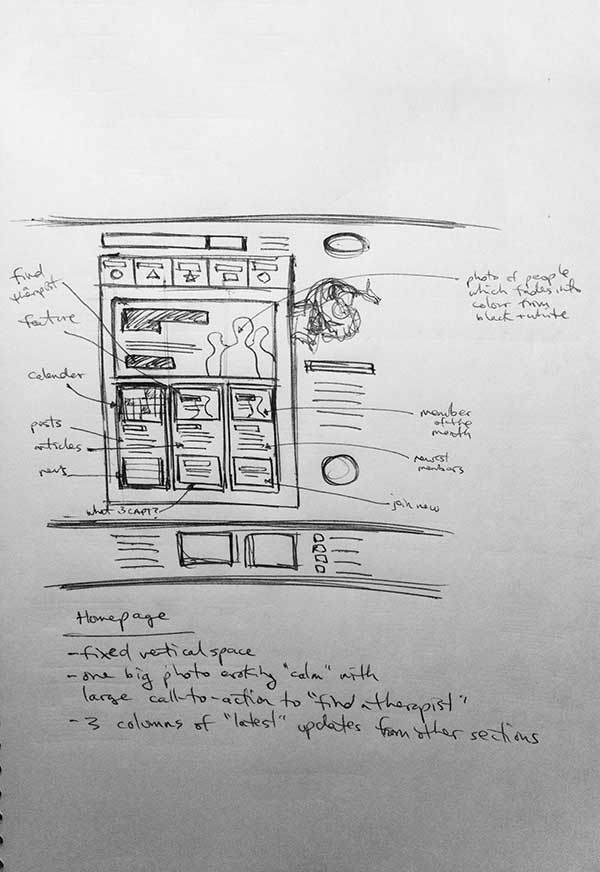 find
a
therapist
feature
calender
posts
articles
news
photo of people
which fades into
colour from
black + white
member
of the
month
newest
members
join now
what
Homepage
- fixed vertical space
- one big photo evoking "calm" with
large call-to-action to "find a therapist"
- 3 columns of "latest" updates from other sections